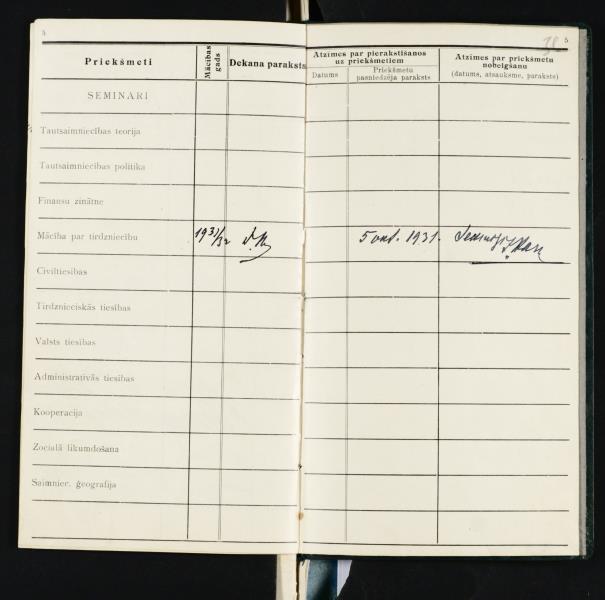 5
Priekšmeti
Mācības gads
Dekana paraksts
SEMINARI
Tautsaimniecības teorija
Tautsaimniecības politika
Finansu zinātne
Mācība par tirdzniecību 1931/32
Civiltiesības
Tirdznieciskās tiesības
Valsts tiesības
Administratīvās tiesības
Kooperacija
Zociālā likumdošana
Saimniec. ģeografija
38
5
Atzīmes par pierakstīšanos
uz priekšmetiem
Datums
Priekšmetu
pasniedzēja paraksts
Atzīmes par priekšmetu
nobeigšanu
(datums, atsauksme, paraksts)
5 okt. 1931.